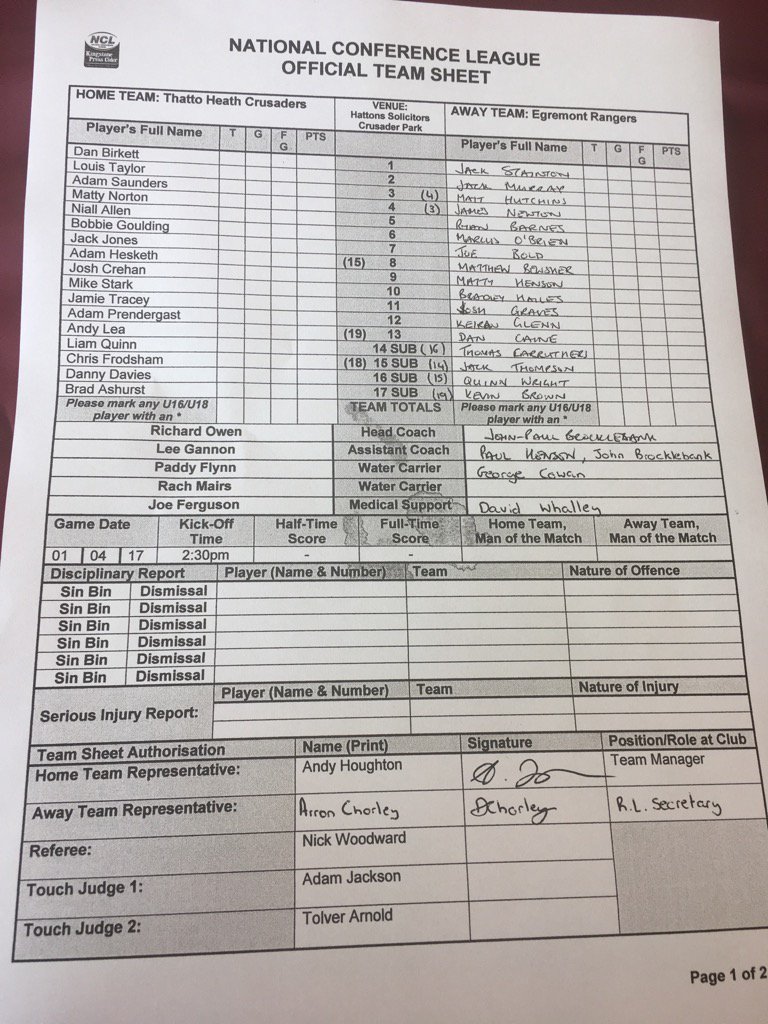 NCL
Kingstone
Press Cider
NATIONAL CONFERENCE LEAGUE
OFFICIAL TEAM SHEET
HOME TEAM: Thatto Heath Crusaders VENUE: Hattons Solicitors Crusader Park AWAY TEAM: Egremont Rangers
Player's Full Name T G F G PTS Player's Full Name T G F G PTS
Dan Birkett 1 JACK STAINTON
Louis Taylor 2 JACK MURRAY
Adam Saunders 3 (4) MATT HUTCHINS
Matty Norton 4 (3) JAMES NEWTON
Niall Allen 5 RYAN BARNES
Bobbie Goulding 6 MARCUS O'BRIEN
Jack Jones 7 JOE BOLD
Adam Hesketh (15) 8 MATTHEW
Josh Crehan 9 MATTY HENSON
Mike Stark 10 BRADLEY
Jamie Tracey 11 JOSH GRAVES
Adam Prendergast 12 KEIRAN GLENN
Andy Lea (19) 13 DAN CAINE
Liam Quinn 14 SUB (16) THOMAS CARRUTHERS
Chris Frodsham (18) 15 SUB (14) JACK THOMPSON
Danny Davies 16 SUB (15) QUINN WRIGHT
Brad Ashurst 17 SUB (19) KEVIN BROWN
Please mark any U16/U18 player with an * TEAM TOTALS Please mark any U16/U18 player with an *
Richard Owen Head Coach JOHN-PAUL BROCKLEBANK
Lee Gannon Assistant Coach PAUL HENSON, John Brocklebank
Paddy Flynn Water Carrier George Cowan
Rach Mairs Water Carrier
Joe Ferguson Medical Support David Whalley
Game Date Kick-Off Time Half-Time Score Full-Time Score Home Team, Man of the Match Away Team, Man of the Match
01 04 17 2:30pm - -
Disciplinary Report Player (Name & Number) Team Nature of Offence
Sin Bin Dismissal
Sin Bin Dismissal
Sin Bin Dismissal
Sin Bin Dismissal
Sin Bin Dismissal
Sin Bin Dismissal
Serious Injury Report: Player (Name & Number) Team Nature of Injury
Team Sheet Authorisation Name (Print) Signature Position/Role at Club
Home Team Representative: Andy Houghton Team Manager
Away Team Representative: Arron Chorley AChorley R.L. Secretary
Referee: Nick Woodward
Touch Judge 1: Adam Jackson
Touch Judge 2: Tolver Arnold
Page 1 of 2